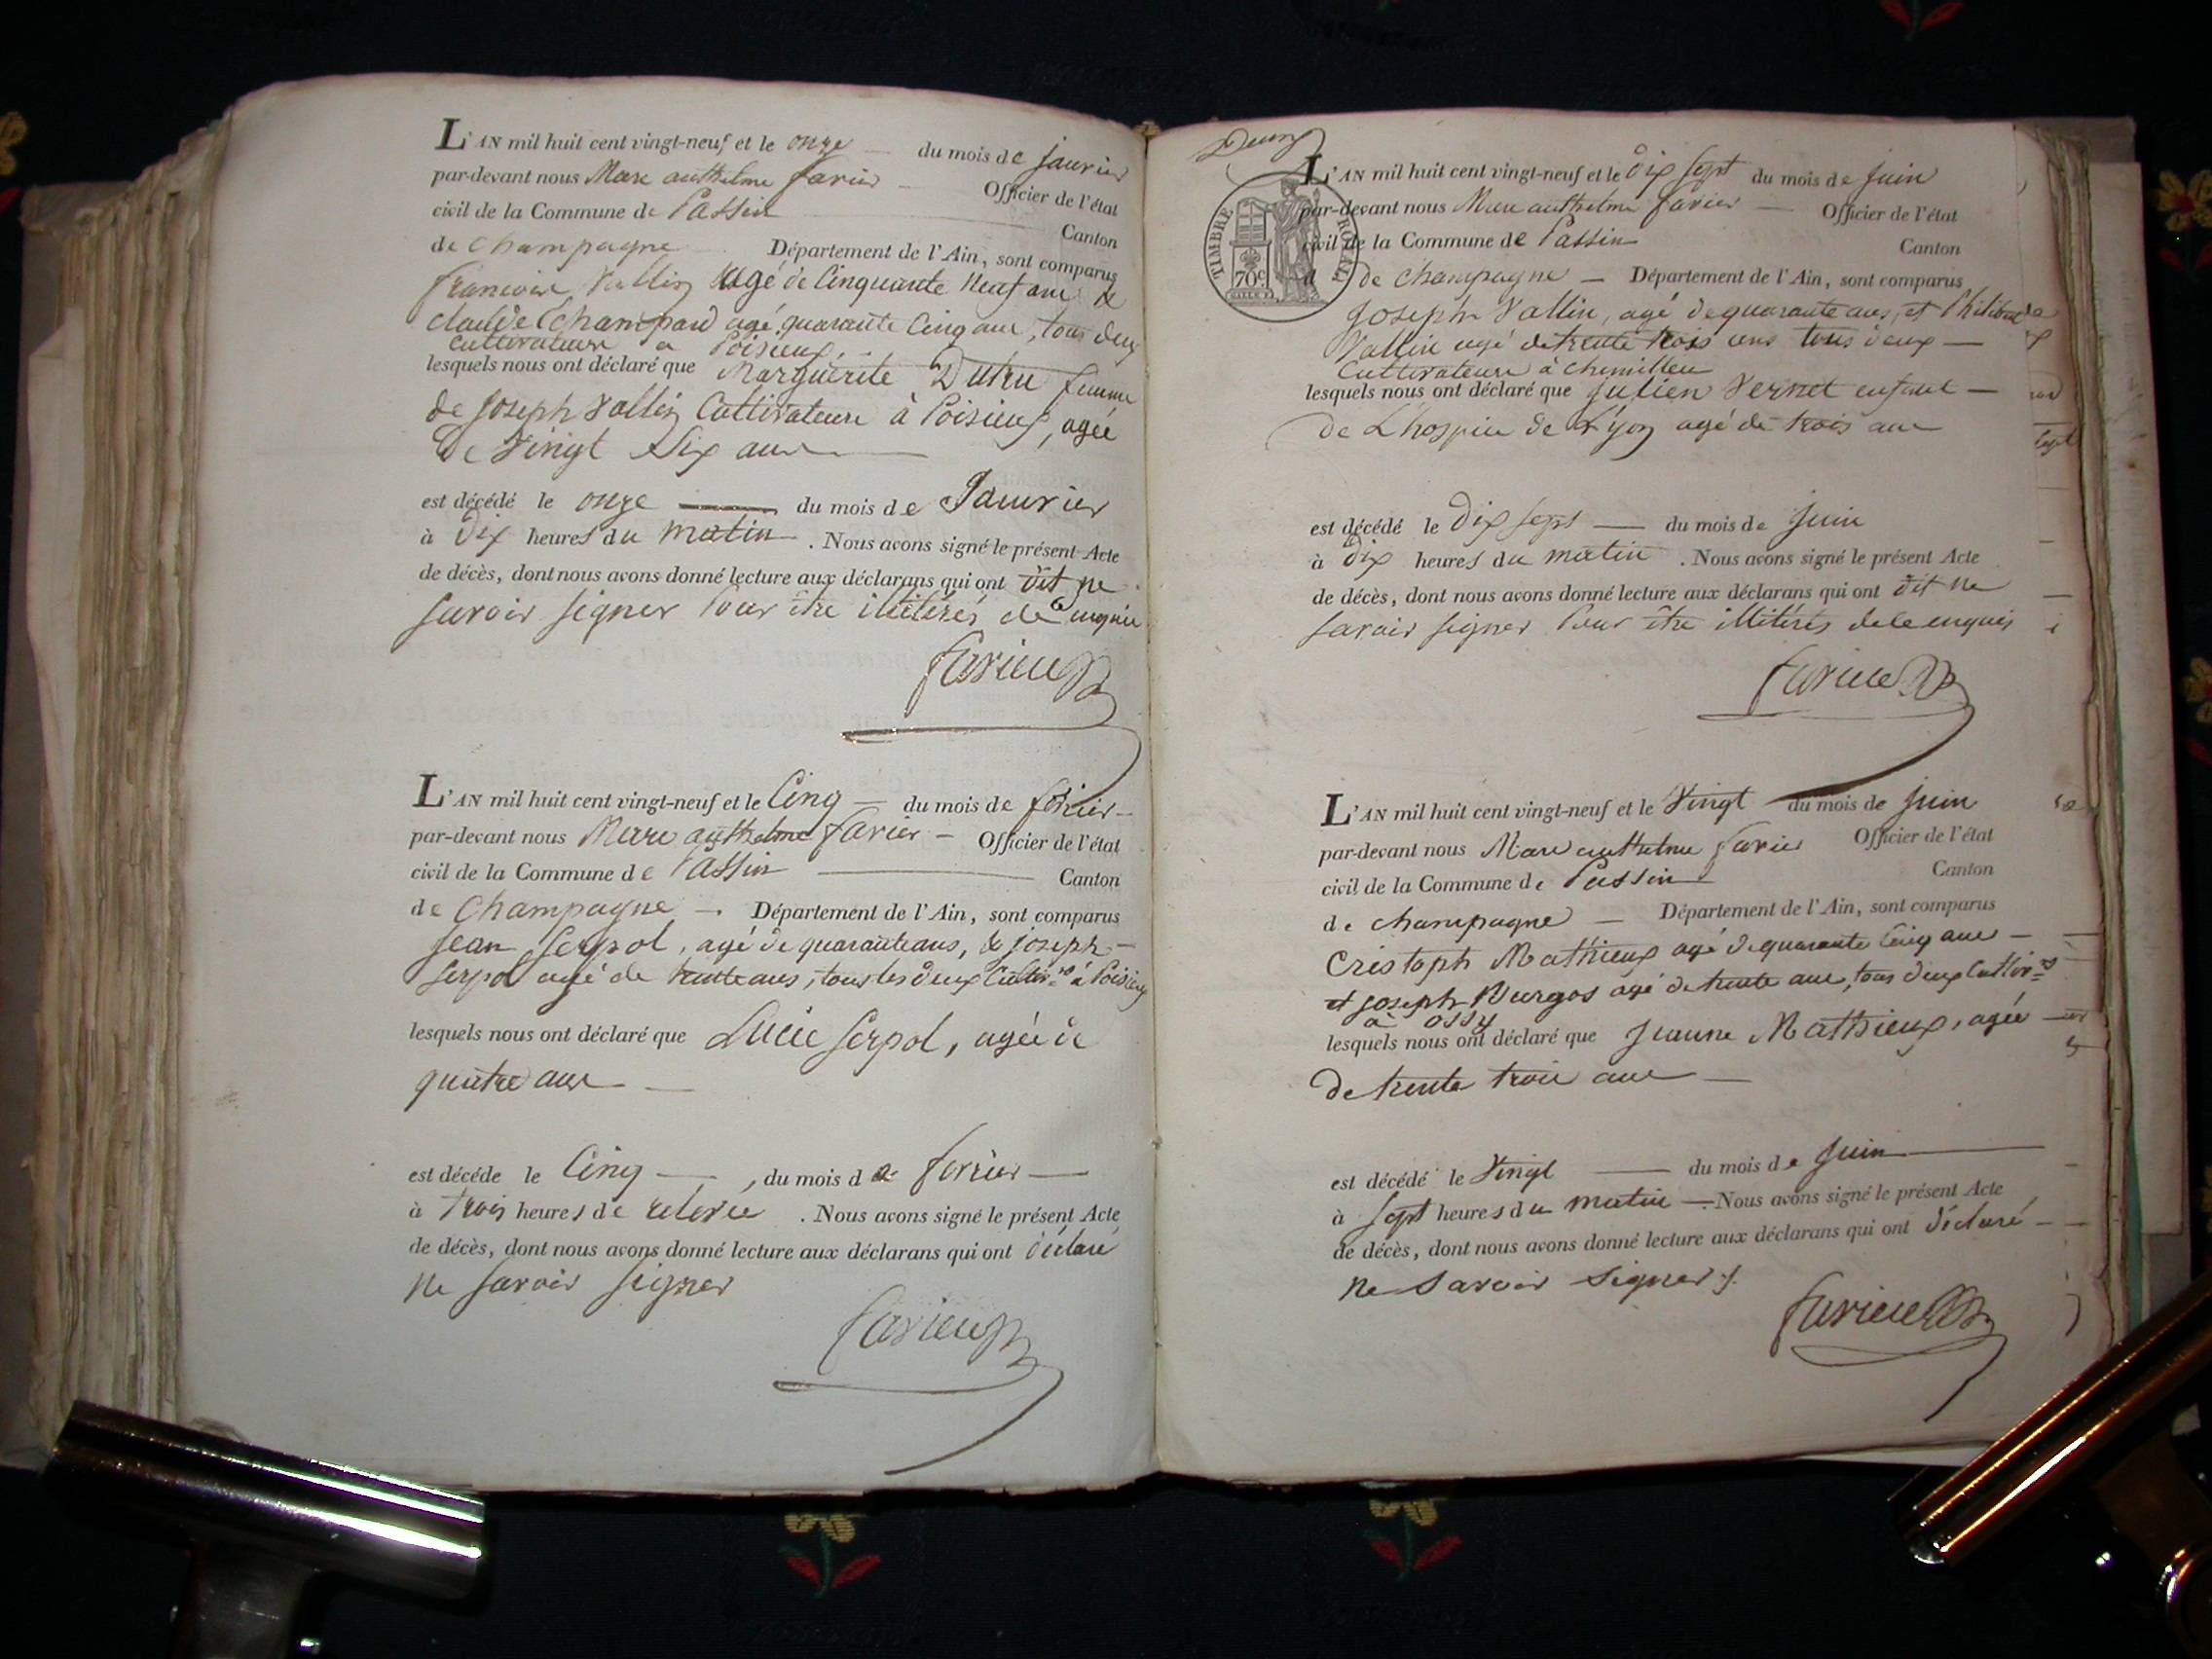 L'AN mil huit cent vingt-neuf et le onze du mois de janvier
par-devant nous Marc anthelme favier Officier de l'état
civil de la Commune de Passin Canton
de Champagne Département de l'Ain, sont comparus
francois Vallin agé de Cinquante Neuf ans &
claude Champard agé quarante Cinq ans, tous deux
cultivateurs a Poisieux,
lesquels nous ont déclaré que Marguerite Dutru femme
de joseph Vallin Cultivateure à Poisieux, agée
De Vingt Six ans
est décédé le onze du mois de Janvier
à Dix heures du matin. Nous avons signé le présent Acte
de décès, dont nous avons donné lecture aux déclarans qui ont dit ne
savoir signer Pour être illitérés de enquis
favier
L'AN mil huit cent vingt-neuf et le Cinq du mois de février
par-devant nous Marc anthelme favier Officier de l'état
civil de la Commune de Passin Canton
de Champagne Département de l'Ain, sont comparus
jean Serpol, agé de quarante ans, & joseph
Serpol agé de trente ans, tous les deux à Poisieux
lesquels nous ont déclaré que Lucie Serpol, agée de
quatre ans
est décéde le Cinq, du mois de février
à Trois heures de relevée. Nous avons signé le présent Acte
de décès, dont nous avons donné lecture aux déclarans qui ont déclaré
ne savoir signer
favier
Deux
TIMBRE ROYAL
70c
L'AN mil huit cent vingt-neuf et le dix sept du mois de juin
par-devant nous Marc anthelme favier Officier de l'état
civil de la Commune de Passin Canton
de champagne Département de l'Ain, sont comparus
joseph Vallin, agé de quarante ans, et Philibert
Vallin agé de trente trois ans tous deux
Cultivateurs à chemilleu
lesquels nous ont déclaré que julien Vernet enfant
de L'hospice de Lyon agé de trois ans
est décédé le Dix sept du mois de juin
à dix heures du matin. Nous avons signé le présent Acte
de décès, dont nous avons donné lecture aux déclarans qui ont dit ne
savoir signer Pour être illitérés de ce enquis
favier
L'AN mil huit cent vingt-neuf et le Vingt du mois de juin
par-devant nous Marc anthelme favier Officier de l'état
civil de la Commune de Passin Canton
de champagne Département de l'Ain, sont comparus
Cristoph Mathieux agé de quarante Cinq ans
et joseph Burgos agé de trente ans, tous deux
à ossy
lesquels nous ont déclaré que jeanne Mathieux, agée
De trente trois ans
est décédé le Vingt du mois de juin
à sept heures du matin. Nous avons signé le présent Acte
de décès, dont nous avons donné lecture aux déclarans qui ont déclaré
ne savoir signer
favier